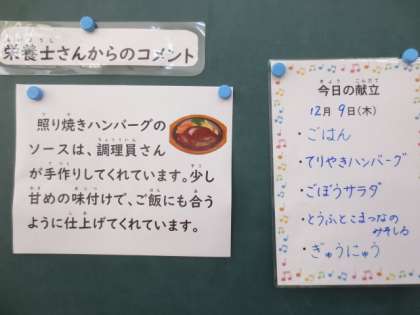 栄養士さんからのコメント
照り焼きハンバーグの
ソースは、調理員さん
が手作りしてくれています。少し
甘めの味付けで、ご飯にも合う
ように仕上げてくれています。
今日の献立
12月 9日(木)
・ごはん
・てりやきハンバーグ
・ごぼうサラダ
・とうふとこまつなの
みそしる
・ぎゅうにゅう